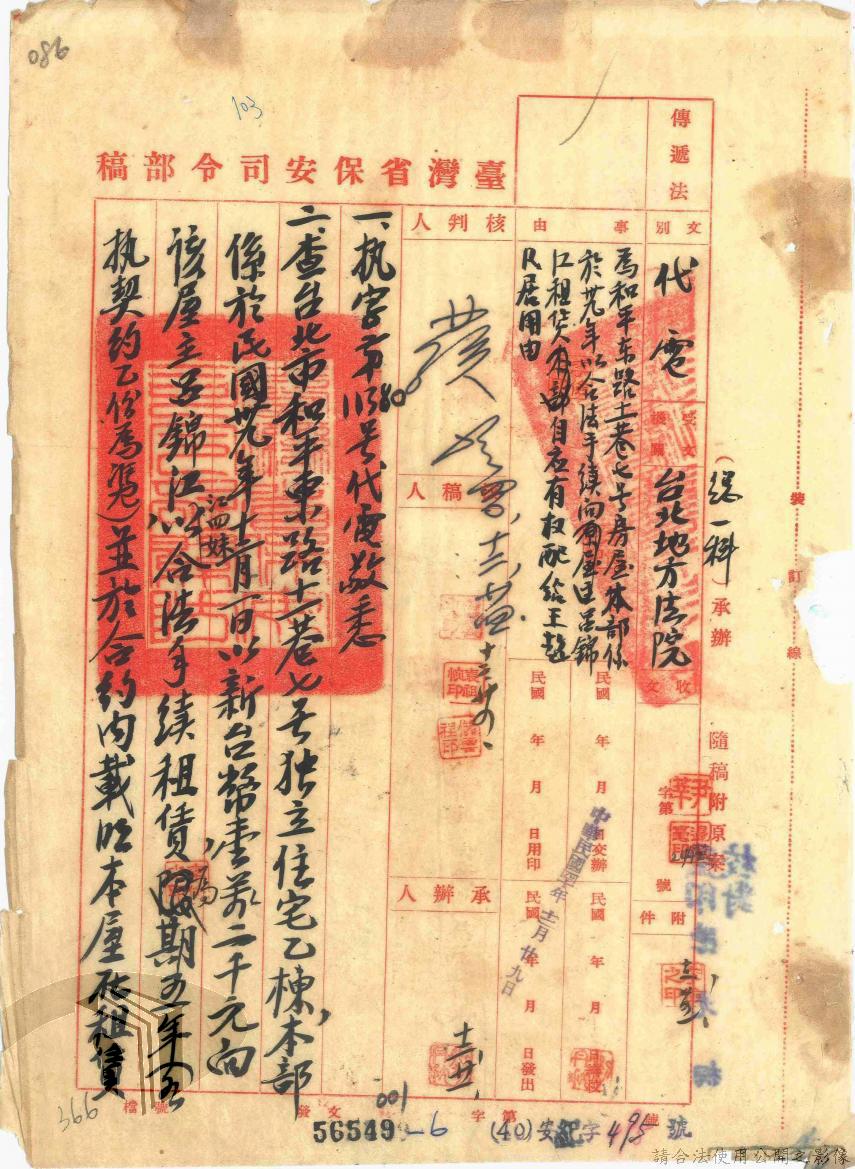 086
103
臺灣省保安司令部稿
傳遞法
文別
代電
受文機關
台北地方法院
(總一科)承辦
隨稿附原案
裝訂線
事由
為和平東路十一巷七号房屋本部係
於卅九年以合法手續向房屋主呂錦
江租賃本部自應有权配給王
民居用由
收文
字第
號
附件
民國 年 月 日交辦
民國 年 月 日用印
民國 年 月 日發出
中華民國四十年十二月廿九日
核判人
核稿人
承辦人
一、執字第1180号代電敬悉
二、查台北市和平東路十一巷七号独立住宅乙棟,本部
係於民國卅九年十二月一日以新台幣壹萬二千元向
該屋主呂錦江,江四妹以合法手續租賃,為期五年
执契約乙份為憑)並於合約內載明本屋在租賃
366
檔號
發文
字第
號
001
56549-6
(40)安紀字495號
校對
請合法使用公開之影像